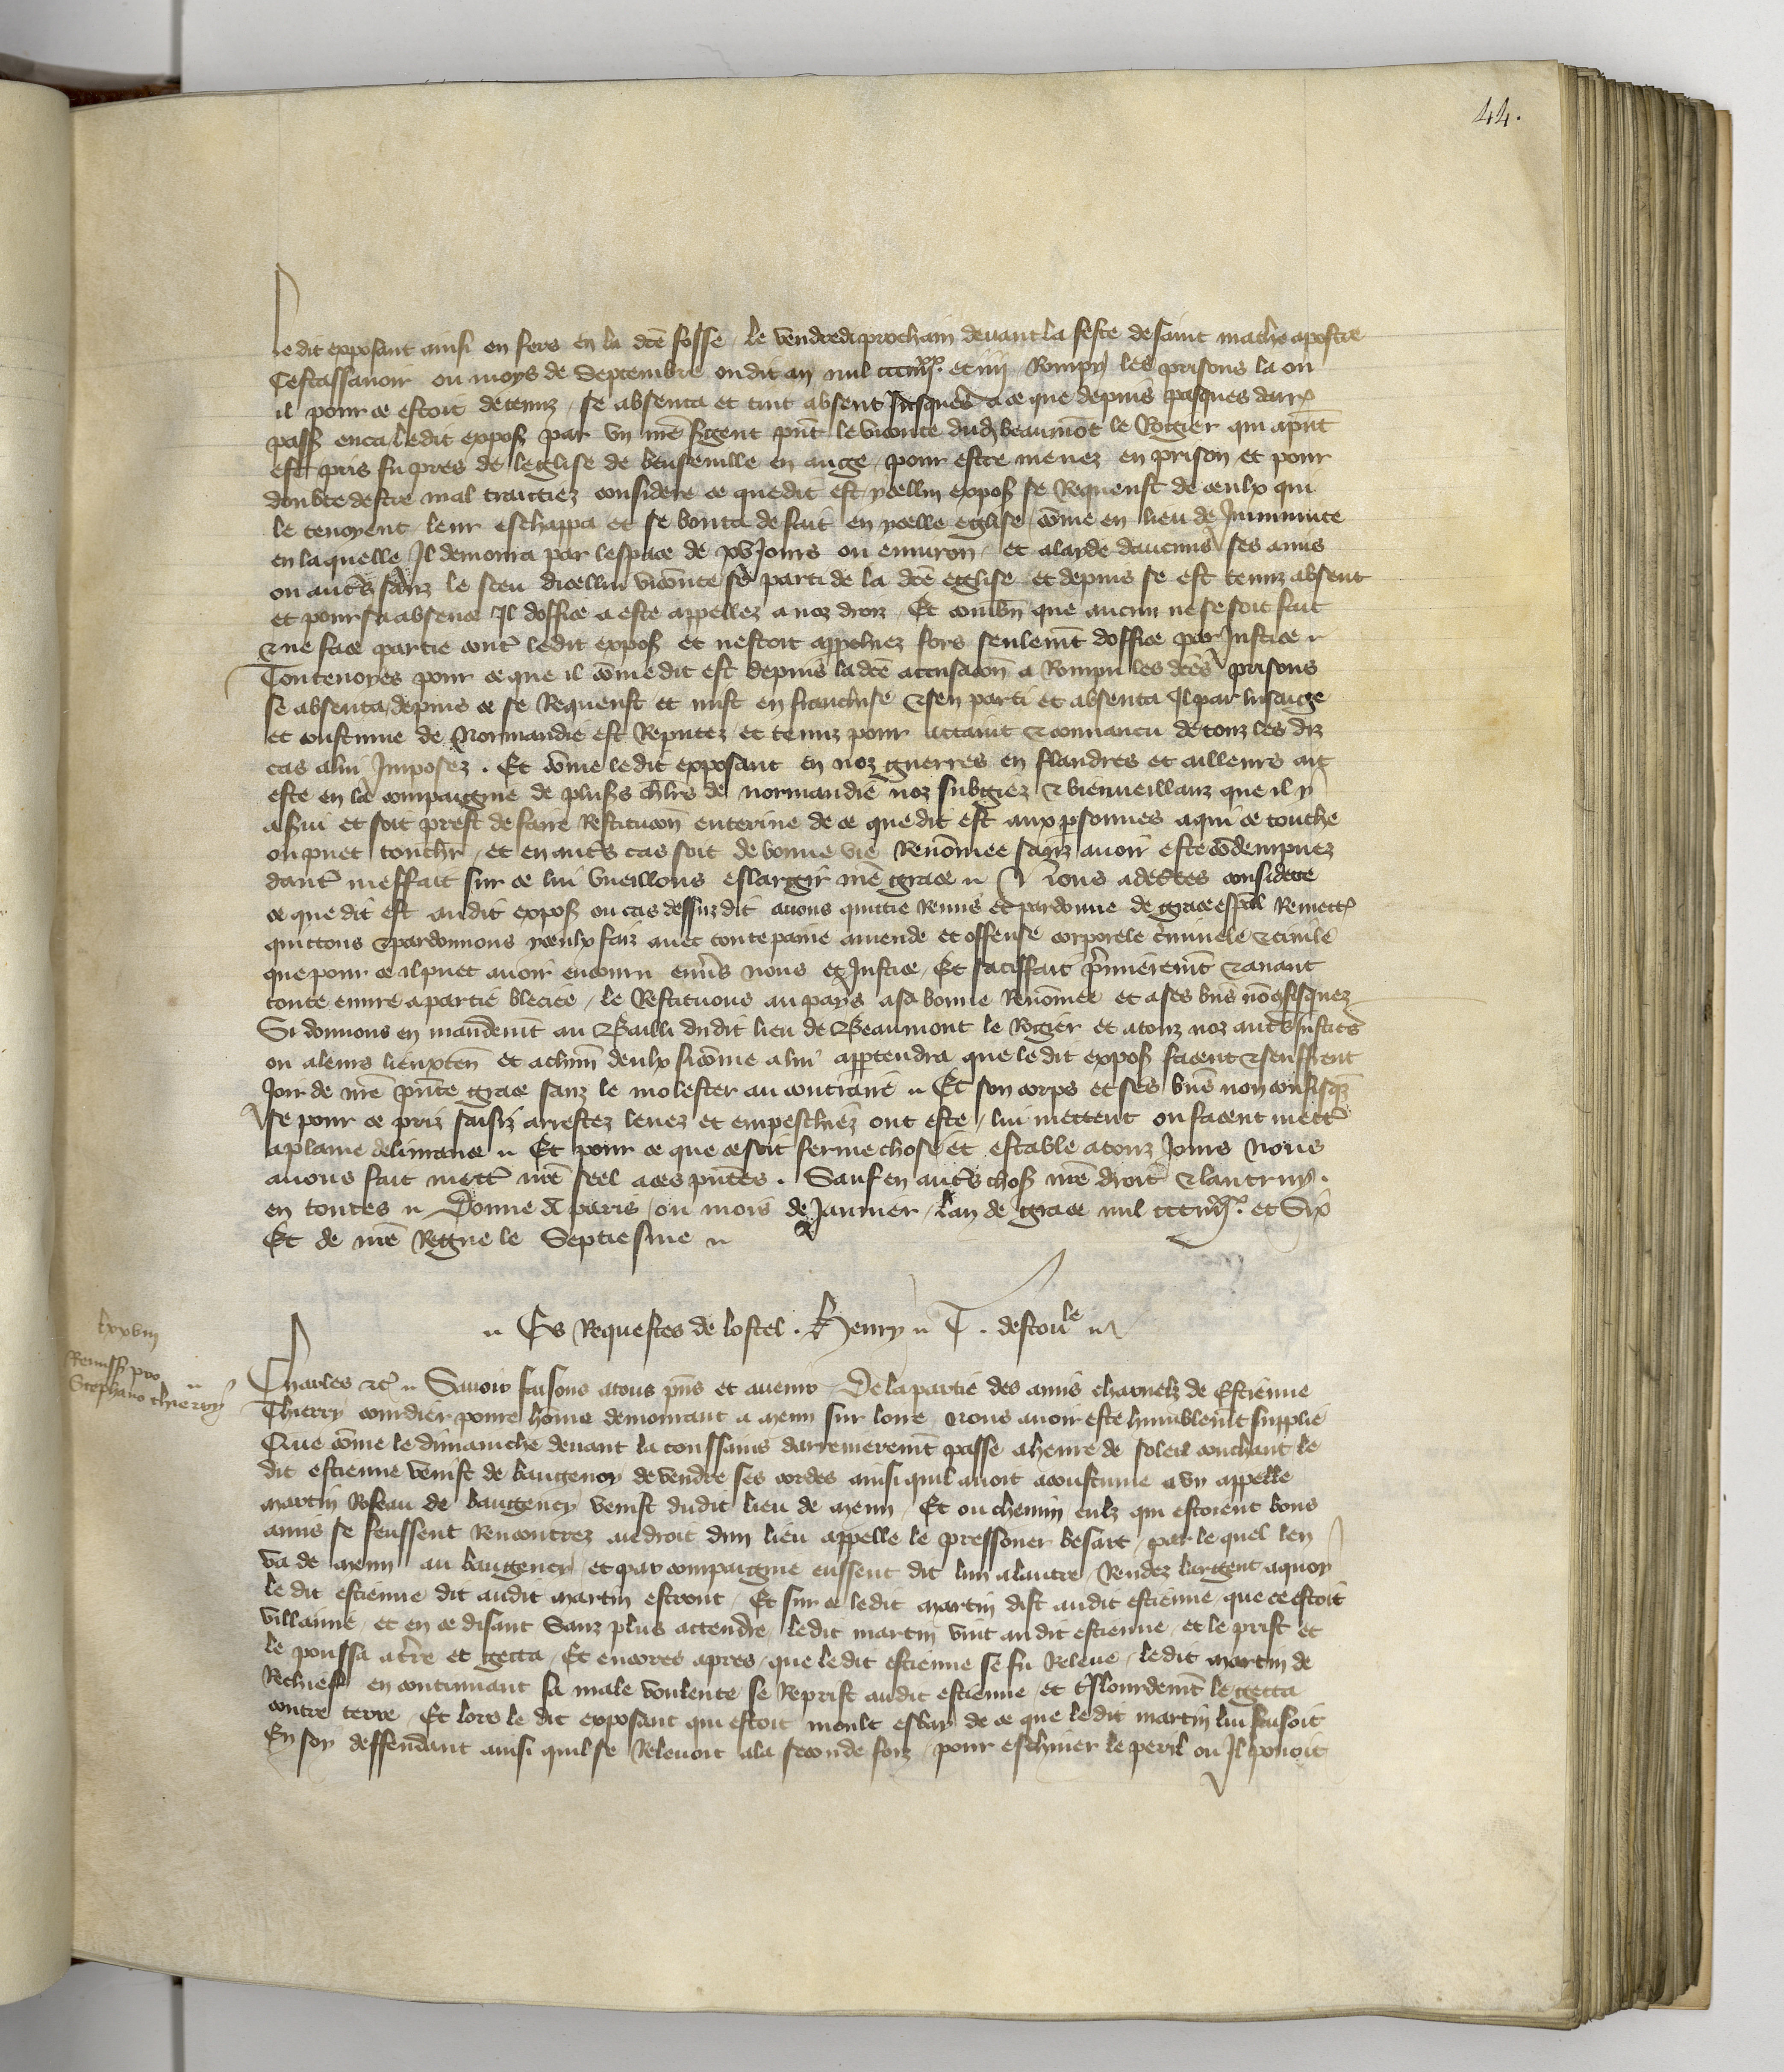 44.
ledit exposant ainsi en fers en la dce fosse le vendredi prochain devant la feste de saint mathe apostre
Cestassavoir ou moys de Septembre ou dit an mil ccciiijxx et iiij Rompy les prisons la ou
il pour ce estoit detenuz se absenta et tint absent jusques a ce que depuis pasques darr
pass enca ledit expos par un nre sgent pnt le viconte dud beaumot le Rogier qui apnt
est pris fu pres de leglise de beuseville en auge pour estre menez en prison et pour
doubte destre mal traictiez considere ce que dit est ycellui expos se Requeust de ceulx qui
le tenoyent leur eschappa et se bouta de fait en ycelle eglise cōme en lieu de Immunite
en laquelle Il demoura par lespace de xv Jours ou environ et a layde daucuns ses amis
ou autrs sanz le sceu dicellui viconte se parti de la dce eglise et depuis se est tenuz absent
et pour sa absence Il doffice a este appellez a noz droiz Et combn que aucun ne se soit fait
& ne face partie contr ledit expos et nestoit appellez fors seulemt doffice par Justice
Toutevoyes pour ce que il cōme dit est depuis la dce accusacon a Rompu les dces prisons
se absenta depuis ce se Requeust et mist en franchise & sen parti et absenta Il par lusaige
et coustume de Normandie est Reputez et tenuz pour attaint & convaincu de touz les diz
cas a lui Imposez . Et cōme ledit exposant en noz guerres en flandres et ailleurs ait
este en la compaignie de plusrs chlrs de normandie noz subgiez & bienveillanz que il y
a servi et soit prest de faire Restitucon enterine de ce que dit est aux psonnes a qui ce touche
ou puet touchr et en autrs cas soit de bonne vie Renōmee sanz avoir este cōdempnez
dautr meffait sur ce lui vueillons eslargir nre grace Nous adecertes considere
ce que dit est audit expos ou cas dessuzdit avons quictie Remis et pardonne de grace espal Remectr
quictons & pardonnons yceulx faiz avec toute paine amende et offense corporele crminele & civile
que pour ce il puet avoir encouru envrs nous et Justice Et satiffait prmieremt & avant
toute euvre a partie bleciee le Restituons au pays a sa bonne Renōmee et a ses bns nō cofisquez
Si donnons en mandemt au Bailli dudit lieu de Beaumont le Rogier et a touz noz autrs Justicrs
ou a leurs lieuxten et a chun deulx si cōme a lui apptendra que ledit expos facent & seuffrent
Joir de nre prnte grace sanz le molester au contraire Et son corps et ses bns non confisqz
se pour ce priz saisiz arrestez levez et empeschiez ont este lui mettent ou facent mettr
a plaine delivrance Et pour ce que ce soit ferme chose et estable a touz Jours Nous
avons fait mettr nre seel a ces pntes . Sauf en autrs chos nre droit & lautruy
en toutes Donne a paris ou mois de Janvier lan de grace mil ccciiijxx et Six
Et de nre Regne le Septiesme
Es Requestes de lostel . Henry T . destoule
lxxviij
Remiss pro
Stephano thierry
Charles etc Savoir faisons a tous pns et avenir De la partie des amis charnelz de Estienne
Thierry cordier povre hōme demourant a meun sur loire Nous avoir este humblemt supplie
Que cōme le dimanche devant la toussains darrenieremt passe a heure de soleil couchant le
dit estienne venist de baugency de vendre ses cordes ainsi quil avoit acoustume & un appelle
martin Roseau de baugency venist dudit lieu de meun Et ou chemin eulz qui estoient bons
amis se feussent Rencontrez au droit dun lieu appelle le pressouer besart par lequel len
va de meun au baugency et par compaignie eussent dit lun a lautre Rendez largent a quoy
le dit estienne dit audit martin estront Et sur ce ledit martin dist audit estienne que ce estoit
villainie et en ce disant Sanz plus attendre ledit martin vint audit estienne et le prist et
le poussa a tre et getta Et encores apres que ledit estienne se fu Releve ledit martin de
Rechief en continuant sa male voulente se Reprist audit estienne et trslourdemt le getta
contre terre Et lors le dit exposant qui estoit moult esbay de ce que ledit martin lui faisoit
En soy deffendant ainsi quil se Relevoit a la seconde foiz pour eschiver le peril ou Il povoit